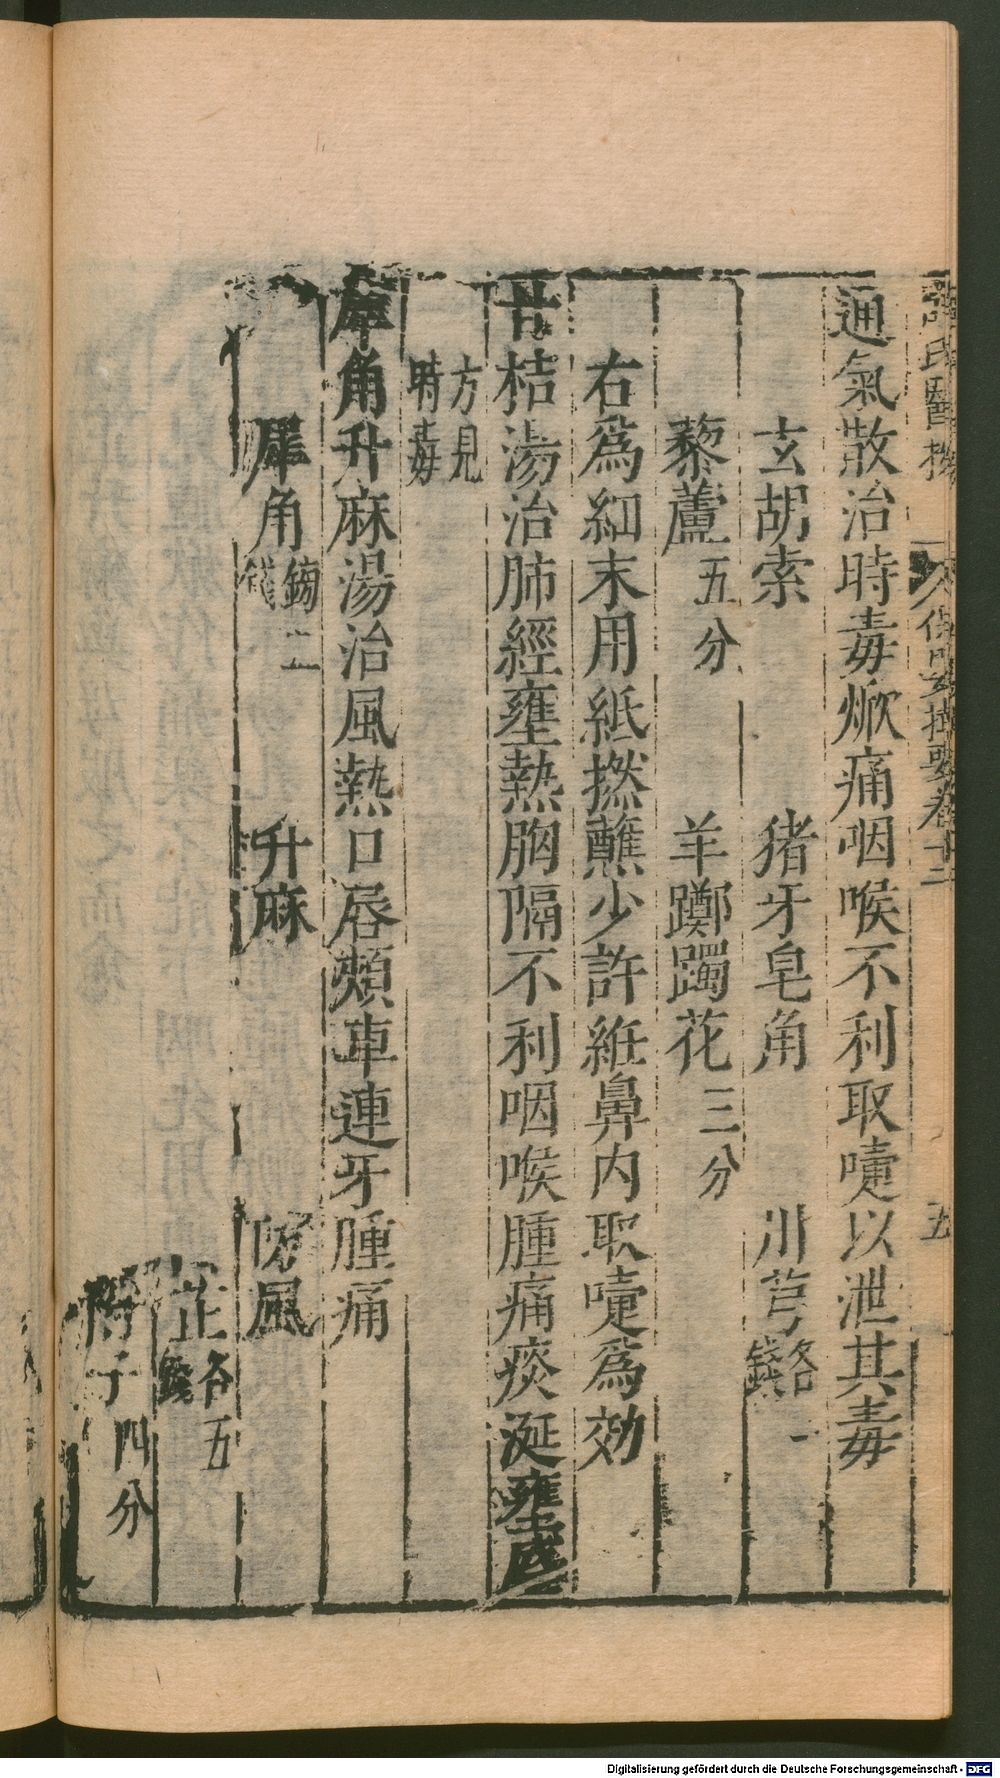 氏醫 保嬰撮要卷十二 五
通氣散治時毒焮痛咽喉不利取嚏以泄其毒
玄胡索 猪牙皂角 川芎各一錢
藜蘆五分 羊躑躅花三分
右爲細末用紙撚蘸少許絍鼻内取嚏爲効
甘桔湯治肺經壅熱胸隔不利咽喉腫痛痰涎壅盛
方見時毒
犀角升麻湯治風熱口唇頰車連牙腫痛
犀角鎊二錢 升麻 防風
芷各五錢
附子四分
Digitalisierung gefördert durch die Deutsche Forschungsgemeinschaft - DFG